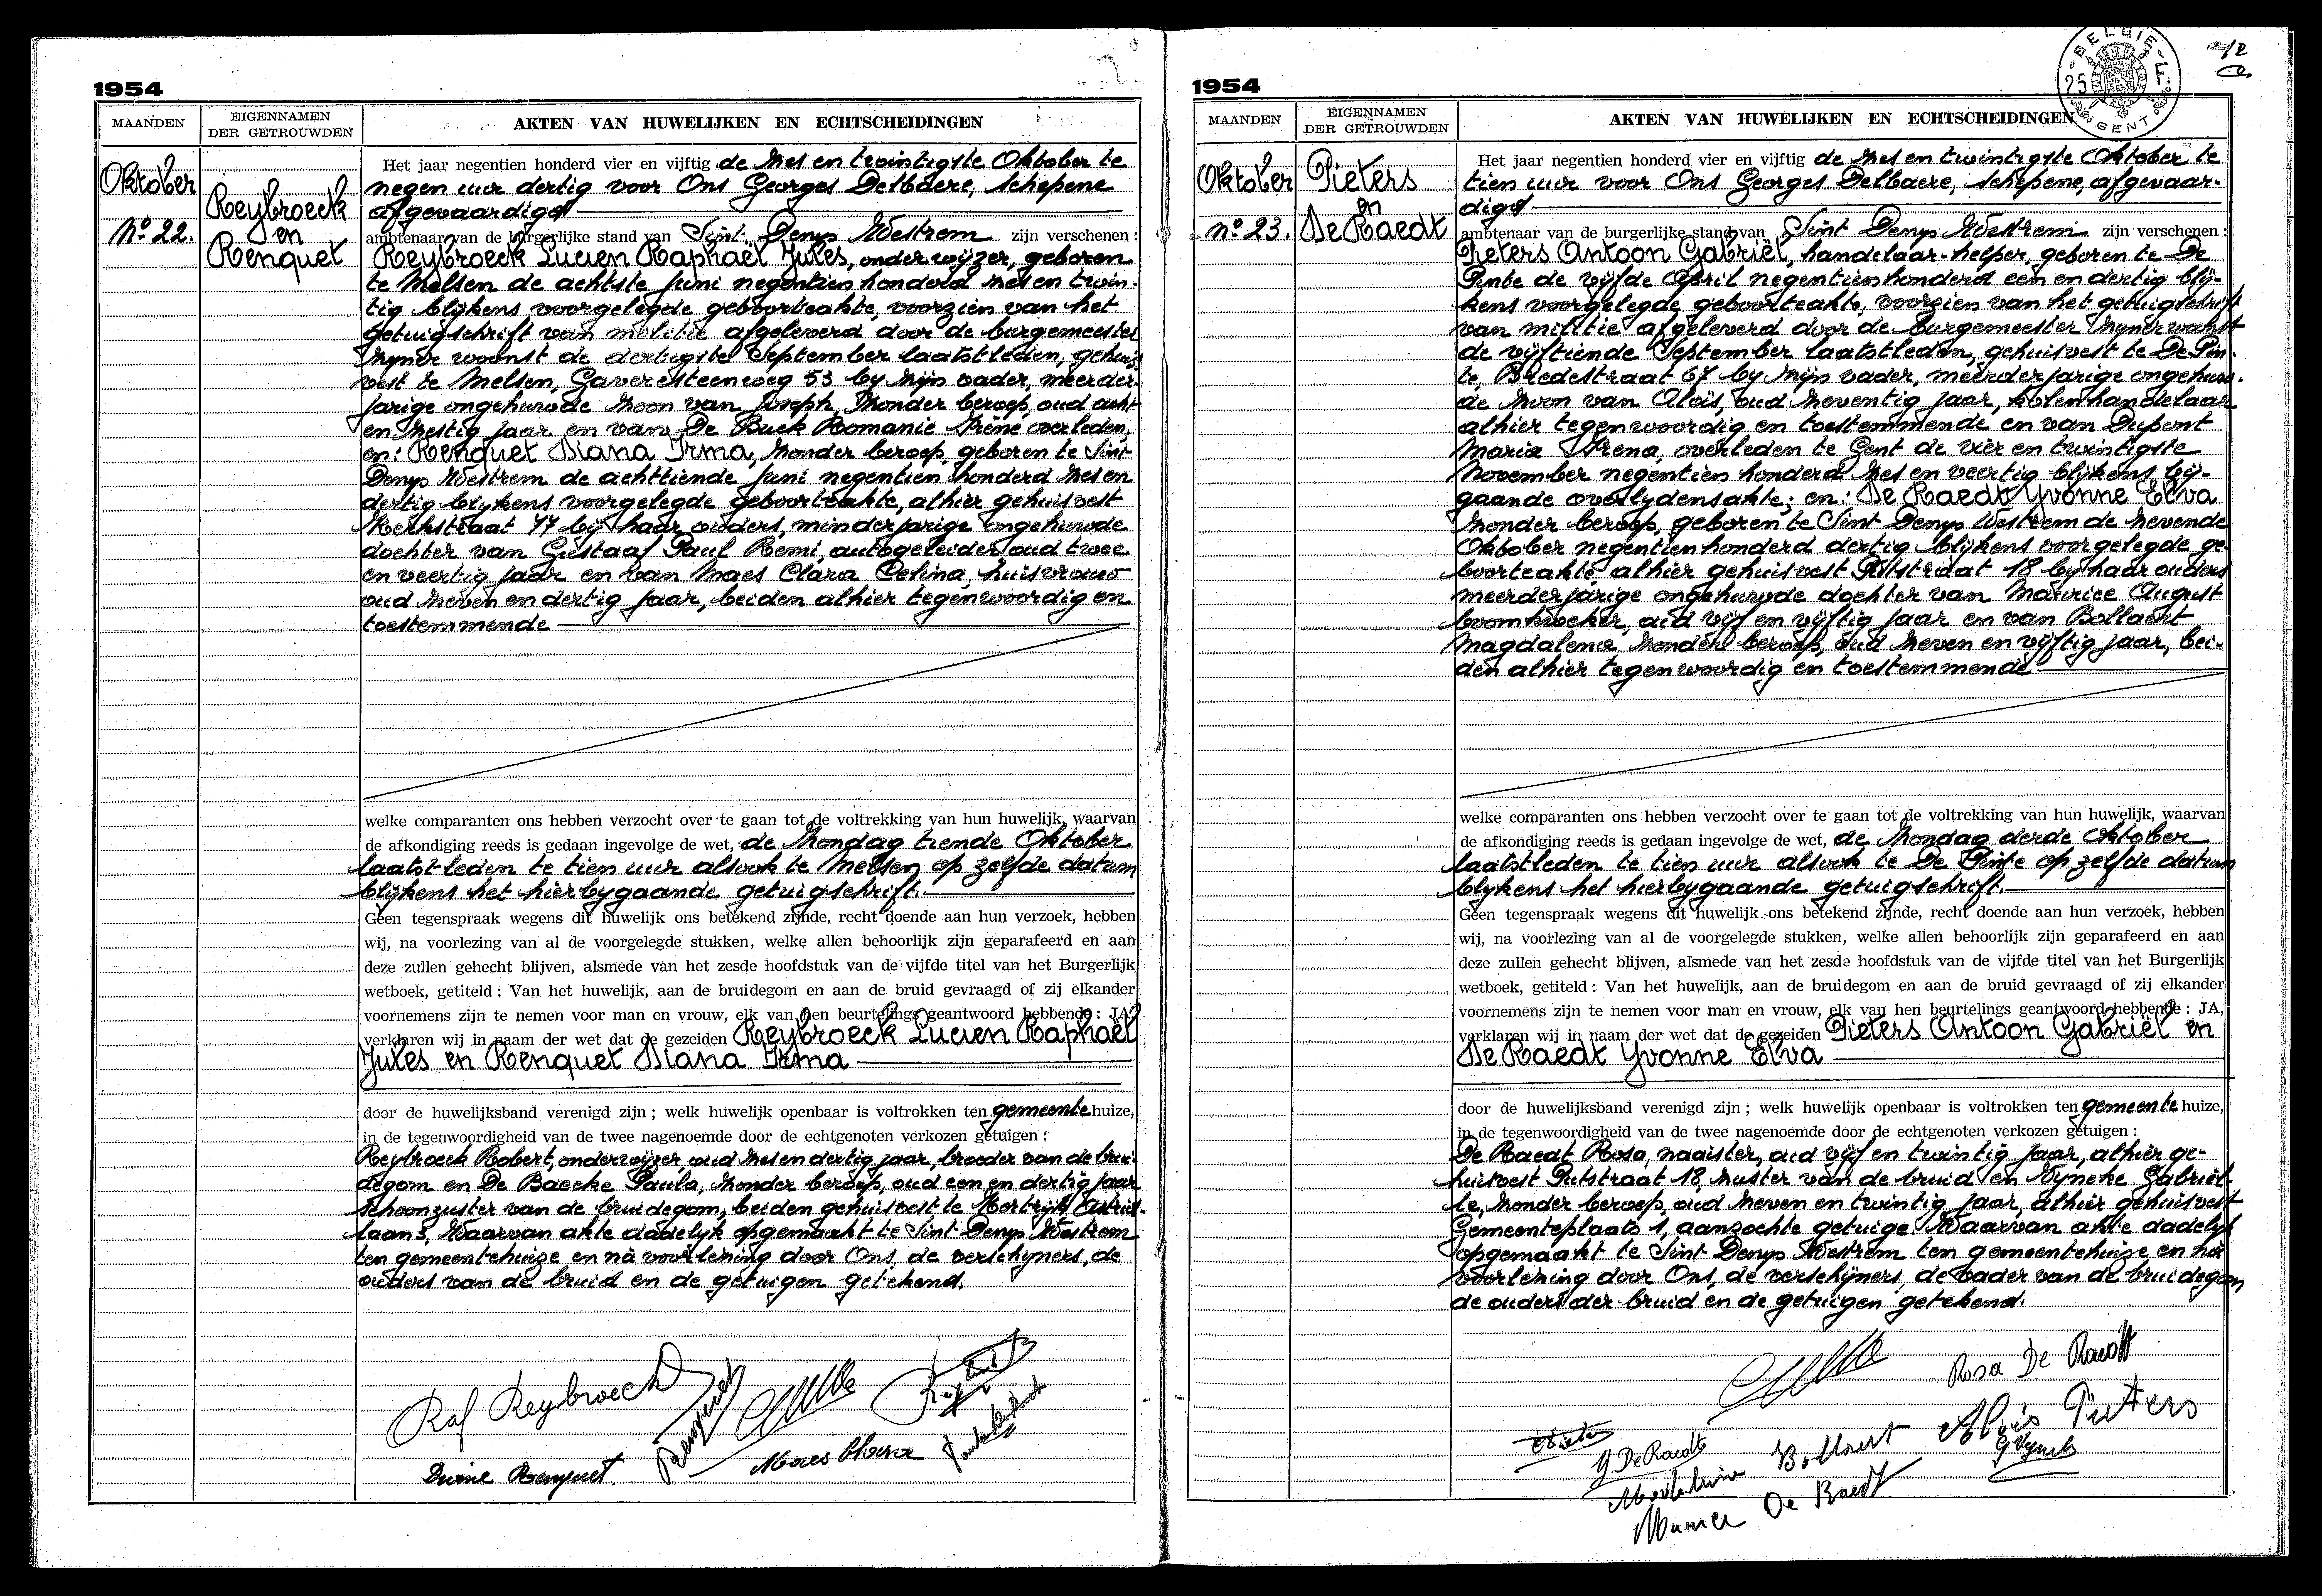 1954
MAANDEN
EIGENNAMEN
DER GETROUWDEN
AKTEN VAN HUWELIJKEN EN ECHTSCHEIDINGEN
Oktober
No. 22.
Reybroeck
en
Renquet
Het jaar negentien honderd vier en vijftig de zes en twintigste Oktober te
negen uur dertig voor Ons Georges Delbaere, schepene
afgevaardigd
ambtenaar van de burgerlijke stand van Sint Denys Westrem zijn verschenen :
Reybroeck Lucien Raphaël Jules, onderwijzer, geboren
te Melsen de achtste Juni negentien honderd zes en twin-
tig blijkens voorgelegde geboorteakte, voorzien van het
getuigschrift van militie afgeleverd door de burgemeester
zyner woonst de dertigste September laatstleden, gehuis-
vest te Melsen, Gaveresteenweg 53 by zijn vader, meerder-
jarige ongehuwde zoon van Joseph, zonder beroep, oud acht
en zestig jaar en van De Buck Romanie Irène overleden,
en: Renquet Diana Irma, zonder beroep, geboren te Sint
Denys Westrem de achttiende Juni negentien honderd zes en
dertig blykens voorgelegde geboorteakte, alhier gehuisvest
Kerkstraat 77 bij haar ouders, minderjarige ongehuwde
dochter van Gustaaf Paul Remi, autogeleider oud twee
en veertig jaar en van Maes Clara Celina, huisvrouw
oud zeven en dertig jaar, beiden alhier tegenwoordig en
toestemmende
welke comparanten ons hebben verzocht over te gaan tot de voltrekking van hun huwelijk, waarvan
de afkondiging reeds is gedaan ingevolge de wet, de zondag tiende Oktober
laatstleden te tien uur alsook te Melsen op zelfde datum
blijkens het hierbygaande getuigschrift.
Geen tegenspraak wegens dit huwelijk ons betekend zijnde, recht doende aan hun verzoek, hebben
wij, na voorlezing van al de voorgelegde stukken, welke allen behoorlijk zijn geparafeerd en aan
deze zullen gehecht blijven, alsmede van het zesde hoofdstuk van de vijfde titel van het Burgerlijk
wetboek, getiteld : Van het huwelijk, aan de bruidegom en aan de bruid gevraagd of zij elkander
voornemens zijn te nemen voor man en vrouw, elk van hen beurtelings geantwoord hebbende : JA,
verklaren wij in naam der wet dat de gezeiden Reybroeck Lucien Raphaël
Jules en Renquet Diana Irma
door de huwelijksband verenigd zijn ; welk huwelijk openbaar is voltrokken ten gemeente huize,
in de tegenwoordigheid van de twee nagenoemde door de echtgenoten verkozen getuigen :
Reybroeck Robert, onderwijzer, oud zes en dertig jaar, broeder van de brui-
degom en De Baecke Paula, zonder beroep, oud een en dertig jaar
schoonzuster van de bruidegom, beiden gehuisvest te Kortrijk Astrid-
laan 3, Waarvan akte dadelyk opgemaakt te Sint Denys Westrem
ten gemeentehuize en nà voorlezing door Ons, de verschyners, de
ouders van de bruid en de getuigen getekend.
Raf Reybroeck
Renquet
Maes Clara
Diane Renquet
1954
BELGIE
25 F.
GENT
12
MAANDEN
EIGENNAMEN
DER GETROUWDEN
AKTEN VAN HUWELIJKEN EN ECHTSCHEIDINGEN
Oktober
no. 23.
Pieters
en
De Raedt
Het jaar negentien honderd vier en vijftig de zes en twintigste Oktober te
tien uur voor Ons Georges Delbaere, schepene, afgevaar-
digd
ambtenaar van de burgerlijke stand van Sint Denys Westrem zijn verschenen :
Pieters Antoon Gabriël, handelaar-helper, geboren te De
Pinte de vijfde April negentien honderd een en dertig blij-
kens voorgelegde geboorteakte, voorzien van het getuigschrift
van militie afgeleverd door de burgemeester zyner woonst
de vijftiende September laatstleden, gehuisvest te De Pin-
te, Breedestraat 67 by zijn vader, meerderjarige ongehuw-
de zoon van Aloïs, oud zeventig jaar, kolenhandelaar
alhier tegenwoordig en toestemmende en van Dupont
Maria Irena, overleden te Gent de vier en twintigste
November negentien honderd zes en veertig blijkens bij-
gaande overlydensakte; en: De Raedt Yvonne Elva
zonder beroep, geboren te Sint Denys Westrem de zevende
Oktober negentien honderd dertig blijkens voorgelegde ge-
boorteakte, alhier gehuisvest Putstraat 18 by haar ouders
meerderjarige ongehuwde dochter van Maurice August
boomkweker, oud vijf en vijftig jaar en van Bollaert
Magdalena, zonder beroep, oud zeven en vijftig jaar, bei-
den alhier tegenwoordig en toestemmende
welke comparanten ons hebben verzocht over te gaan tot de voltrekking van hun huwelijk, waarvan
de afkondiging reeds is gedaan ingevolge de wet, de zondag derde Oktober
laatstleden te tien uur alsook te De Pinte op zelfde datum
blykens het hierbygaande getuigschrift.
Geen tegenspraak wegens dit huwelijk ons betekend zijnde, recht doende aan hun verzoek, hebben
wij, na voorlezing van al de voorgelegde stukken, welke allen behoorlijk zijn geparafeerd en aan
deze zullen gehecht blijven, alsmede van het zesde hoofdstuk van de vijfde titel van het Burgerlijk
wetboek, getiteld : Van het huwelijk, aan de bruidegom en aan de bruid gevraagd of zij elkander
voornemens zijn te nemen voor man en vrouw, elk van hen beurtelings geantwoord hebbende : JA,
verklaren wij in naam der wet dat de gezeiden Pieters Antoon Gabriël en
De Raedt Yvonne Elva
door de huwelijksband verenigd zijn ; welk huwelijk openbaar is voltrokken ten gemeente huize,
in de tegenwoordigheid van de twee nagenoemde door de echtgenoten verkozen getuigen :
De Raedt Rosa, naaister, oud vijf en twintig jaar, alhier ge-
huisvest Putstraat 18, zuster van de bruid en Wyncke Gabriël-
le, zonder beroep, oud zeven en twintig jaar, alhier gehuisvest
Gemeenteplaats 1, aanzochte getuige. Waarvan akte dadelyk
opgemaakt te Sint Denys Westrem ten gemeentehuize en nà
voorlezing door Ons, de verschijners, de vader van de bruidegom
de ouders der bruid en de getuigen getekend.
Rosa De Raedt
Aloïs Pieters
Y. De Raedt
Bollaert
Maurice De Raedt